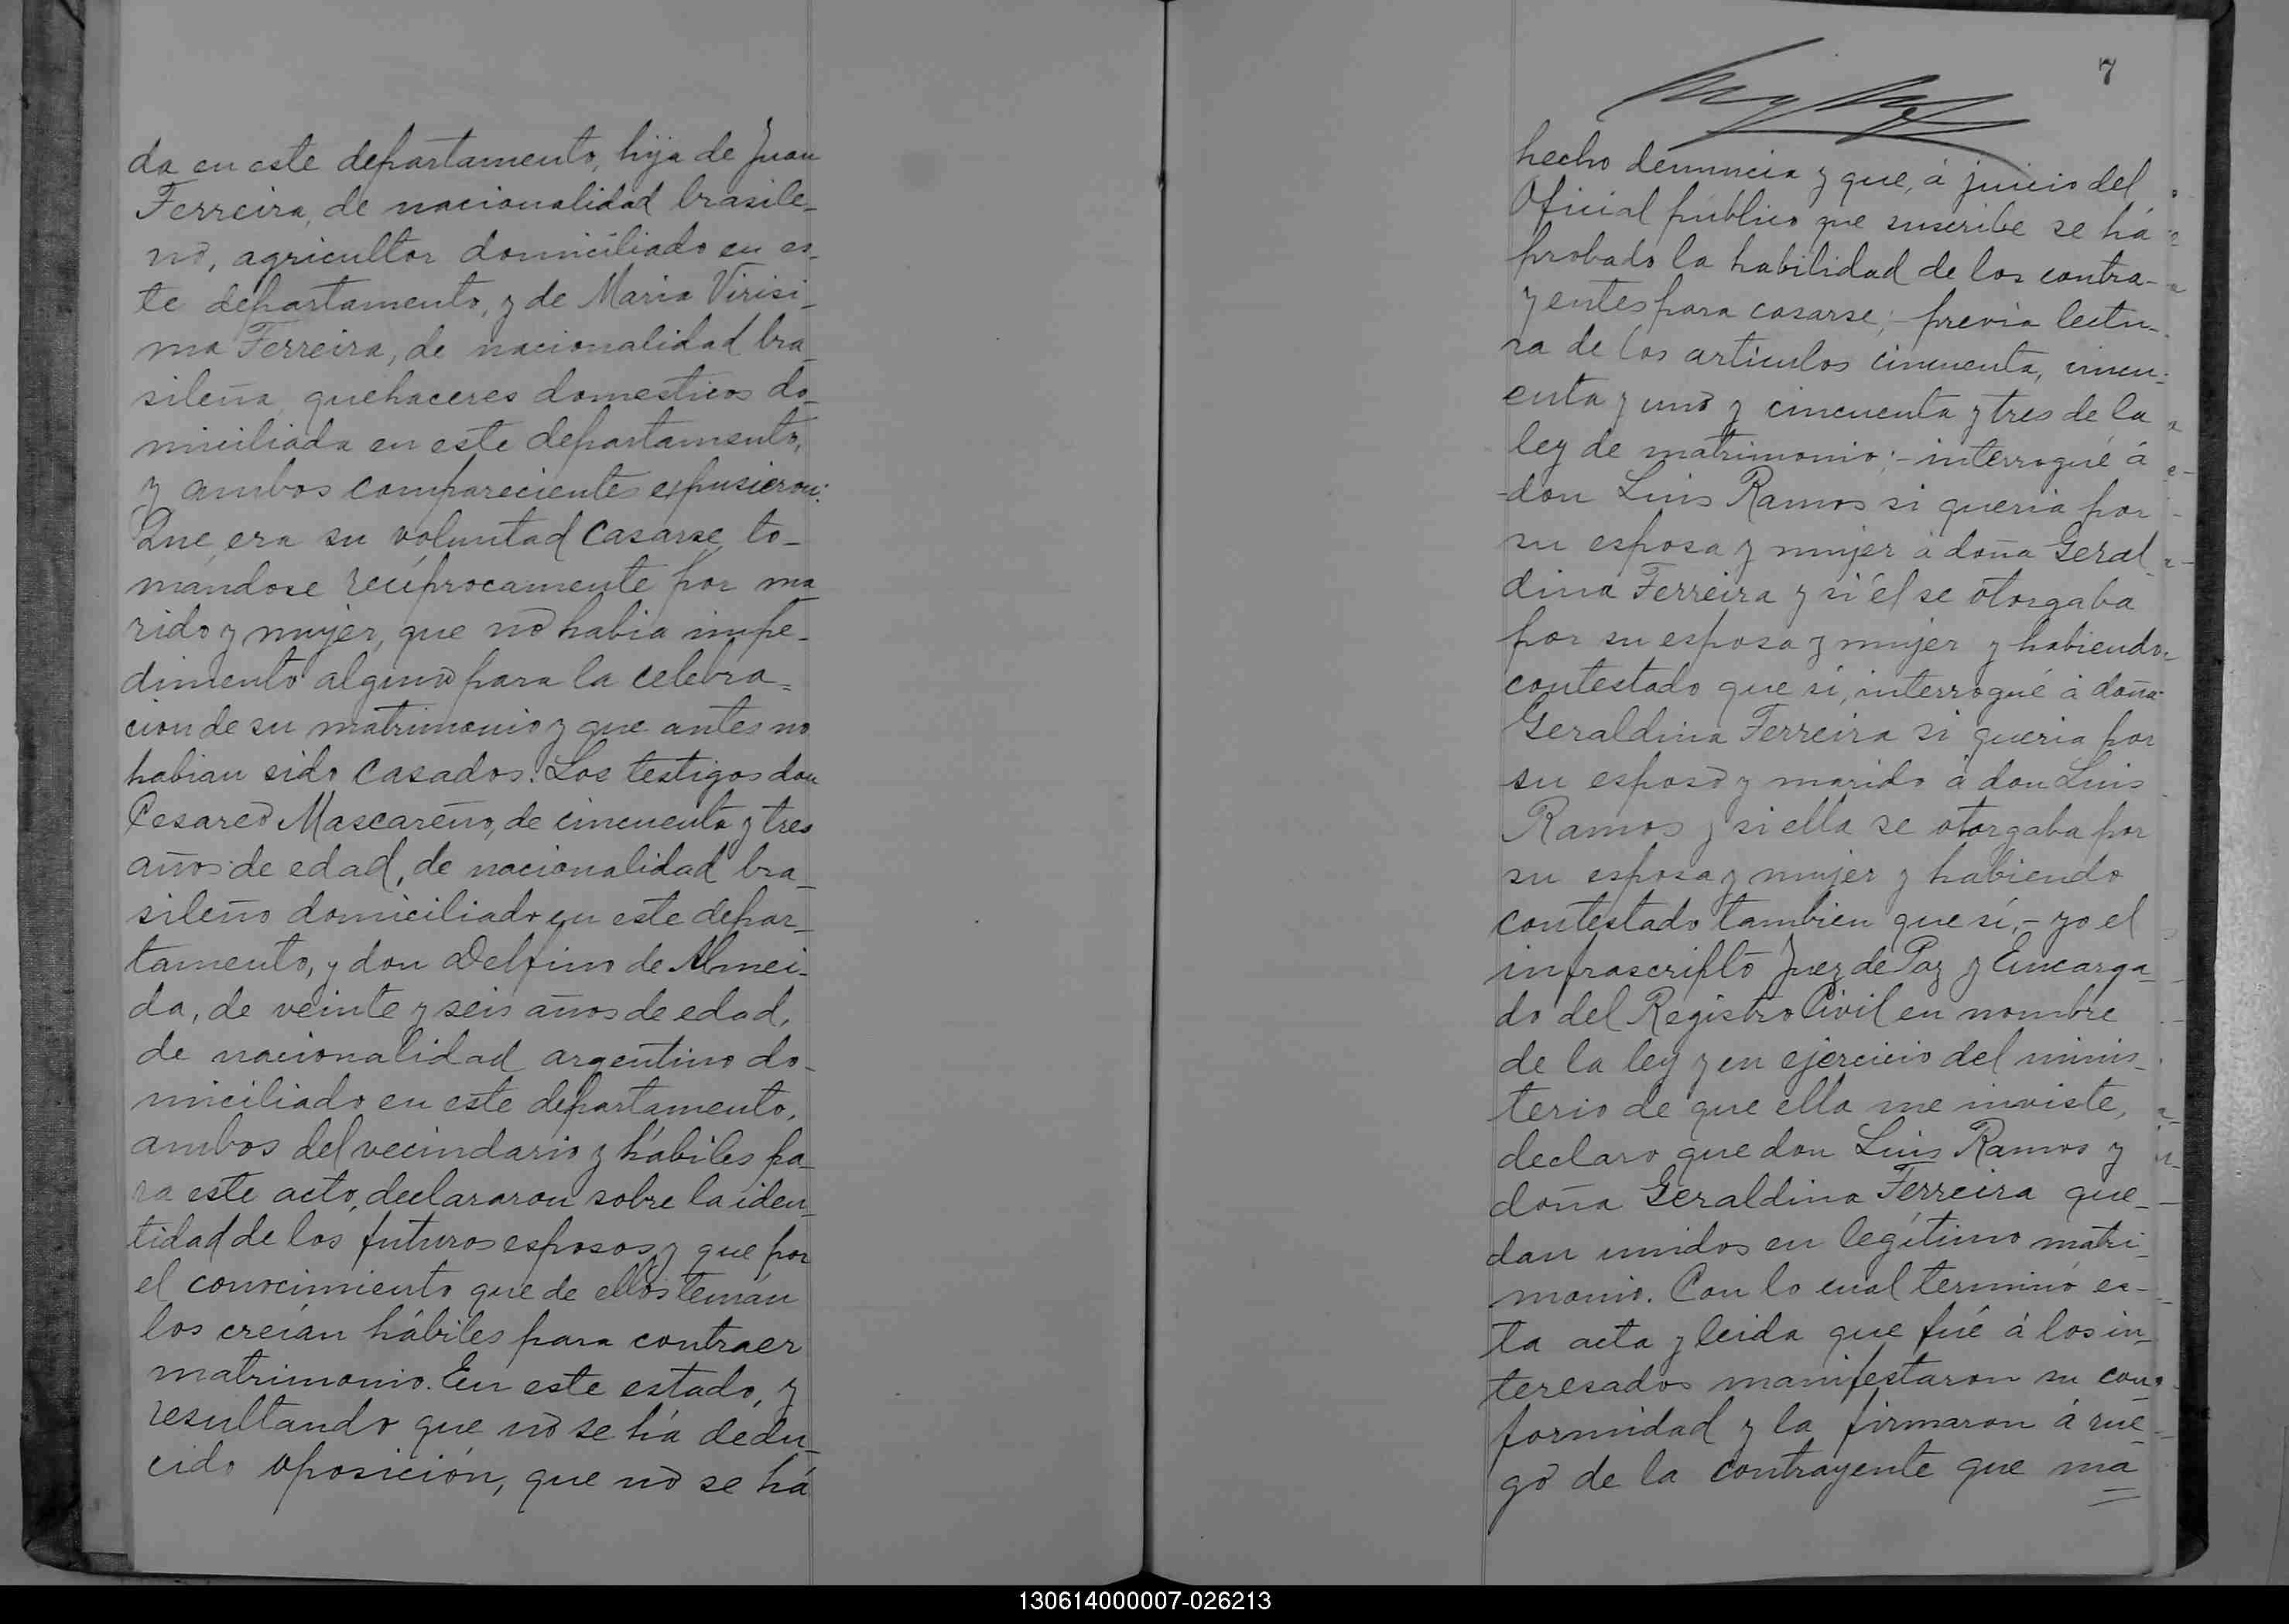 da en este departamento, hija de Juan
Ferreira, de nacionalidad brasile-
no, agricultor domiciliado en es-
te departamento, y de Maria Virisi-
ma Ferreira, de nacionalidad bra-
sileña, quehaceres domesticos do-
miciliada en este departamento,
y ambos comparecientes expusieron:
Que era su voluntad casarse to-
mándose recíprocamente por ma-
rido y mujer, que no habia impe-
dimento alguno para la celebra-
cion de su matrimonio y que antes no
habian sido casados. Los testigos don
Cesareo Mascareño, de cincuenta y tres
años de edad, de nacionalidad bra-
sileño domiciliado en este depar-
tamento, y don Delfino de Almei-
da, de veinte y seis años de edad,
de nacionalidad argentino do-
miciliado en este departamento,
ambos del vecindario y hábiles pa-
ra este acto, declararon sobre la iden-
tidad de los futuros esposos y que por
el conocimiento que de ellos tenían
los creían hábiles para contraer
matrimonio. En este estado, y
resultando que no se há dedu-
cido oposición, que no se há
7
hecho denuncia y que, á juicio del
Oficial público que suscribe se há
probado la habilidad de los contra-
yentes para casarse; - previa lectu-
ra de los articulos cincuenta, cincu-
enta y uno y cincuenta y tres de la
ley de matrimonio; - interrogué á
don Luis Ramos si queria por
su esposa y mujer á doña Geral-
dina Ferreira y si él se otorgaba
por su esposa y mujer y habiendo
contestado que si, interrogué á doña
Geraldina Ferreira si queria por
su esposo y marido á don Luis
Ramos y si ella se otorgaba por
su esposa y mujer y habiendo
contestado tambien que sí, - yo el
infrascripto Juez de Paz y Encarga-
do del Registro Civil en nombre
de la ley y en ejercicio del minis-
terio de que ella me inviste,
declaro que don Luis Ramos y
doña Geraldina Ferreira que-
dan unidos en legítimo matri-
monio. Con lo cual terminó es-
ta acta y leida que fué á los in-
teresados manifestaron su con-
formidad y la firmaron á rue-
go de la contrayente que ma
130614000007-026213